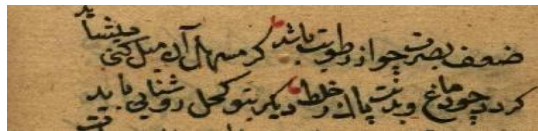 ضعف بصرت چو از رطوبت باشد گر مسهل آن میل کنی میشاید
گردد چو دماغ و بدنت پاک ز خلط دیگر بتو کحل روشنایی باید